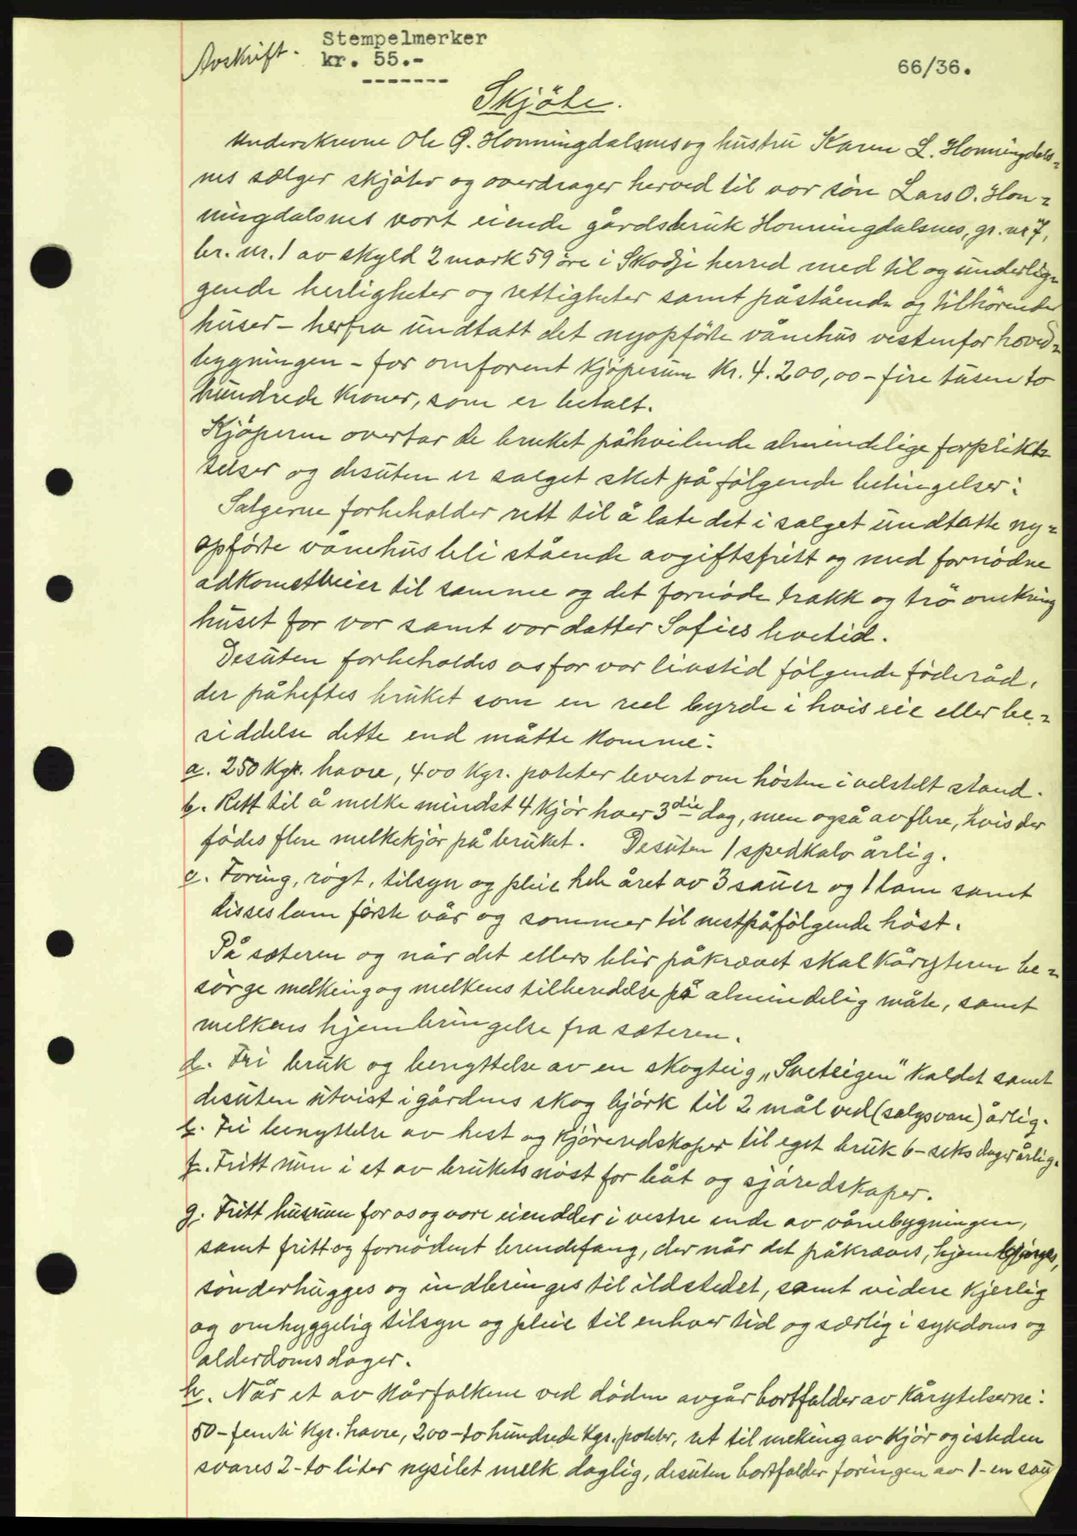 Avskrift.
Stempelmerker
kr. 55.-
66/36.
Skjöte.
Underskrevne Ole P. Honningdalsnes og hustru Karen L. Honningdals-
nes sælger skjöter og overdrager herved til vor sön Lars O. Hon-
ningdalsnes vort eiende gårdsbruk Honningdalsnes, gr. nr 7,
br. nr. 1 av skyld 2 mark 59 öre i Skodje herred med til og underlig-
gende herligheter og rettigheter samt påstående og tilhörende
huser - herfra undtatt det nyopförte vånehus vestenfor hoved-
bygningen - for omforent kjöpesum kr. 4.200,00 - fire tusen to
hundrede kroner, som er betalt.
Kjöperen overtar de bruket påhvilende almindelige forplikt-
telser og desuten er salget sket på fölgende betingelser:
Selgerne forbeholder rett til å late det i salget undtatte ny-
opförte vånehus bli stående avgiftsfritt og med fornödne
adkomstveier til samme og det fornödne trakk og trö omkring
huset for vor samt vor datter Sofies levetid.
Desuten forbeholdes os for vor livstid fölgende föderåd,
der påheftes bruket som en reel byrde i hvis eie eller be-
siddelse dette end måtte komme:
a. 250 kgr. havre, 400 kgr. poteter levert om hösten i velstelt stand.
b. Rett til å melke mindst 4 kjör hver 3die dag, men også av flere, hvis der
födes flere melkekjör på bruket. Desuten 1 spedkalv årlig.
c. Foring, rögt, tilsyn og pleie hele året av 3 sauer og 1 lam samt
disses lam förste vår og sommer til nestpåfölgende höst.
På sæteren og når det ellers blir påkrævet skal kåryteren be-
sörge melking og melkens tilberedelse på almindelig måte, samt
melkens hjembringelse fra sæteren.
d. Fri bruk og benyttelse av en skogteig, kaldet samt
desuten utvist i gårdens skog björk til 2 mål ved (salgsvare) årlig.
e. Fri benyttelse av hest og kjöreredskaper til eget bruk 6 - seks dager årlig.
f. Fritt rum i et av brukets nöst for båt og sjöredskaper.
g. Fritt husrum for os og vore eiendeler i vestre ende av vånebygningen,
samt fritt og fornödent brendefang, der når det påkræves, hjembringes,
sönderhugges og indbringes til ildstedet, samt videre kjerlig
og omhyggelig tilsyn og pleie til enhver tid og særlig i sykdoms og
alderdoms dager.
h. Når et av kårfolkene ved döden avgår bortfalder av kårytelserne:
50 - femti kgr. havre, 200 - to hundrede kgr. poteter, ret til melking av kjör og isteden
svares 2 - to liter nysilet melk daglig, desuten bortfalder foringen av 1 - en sau